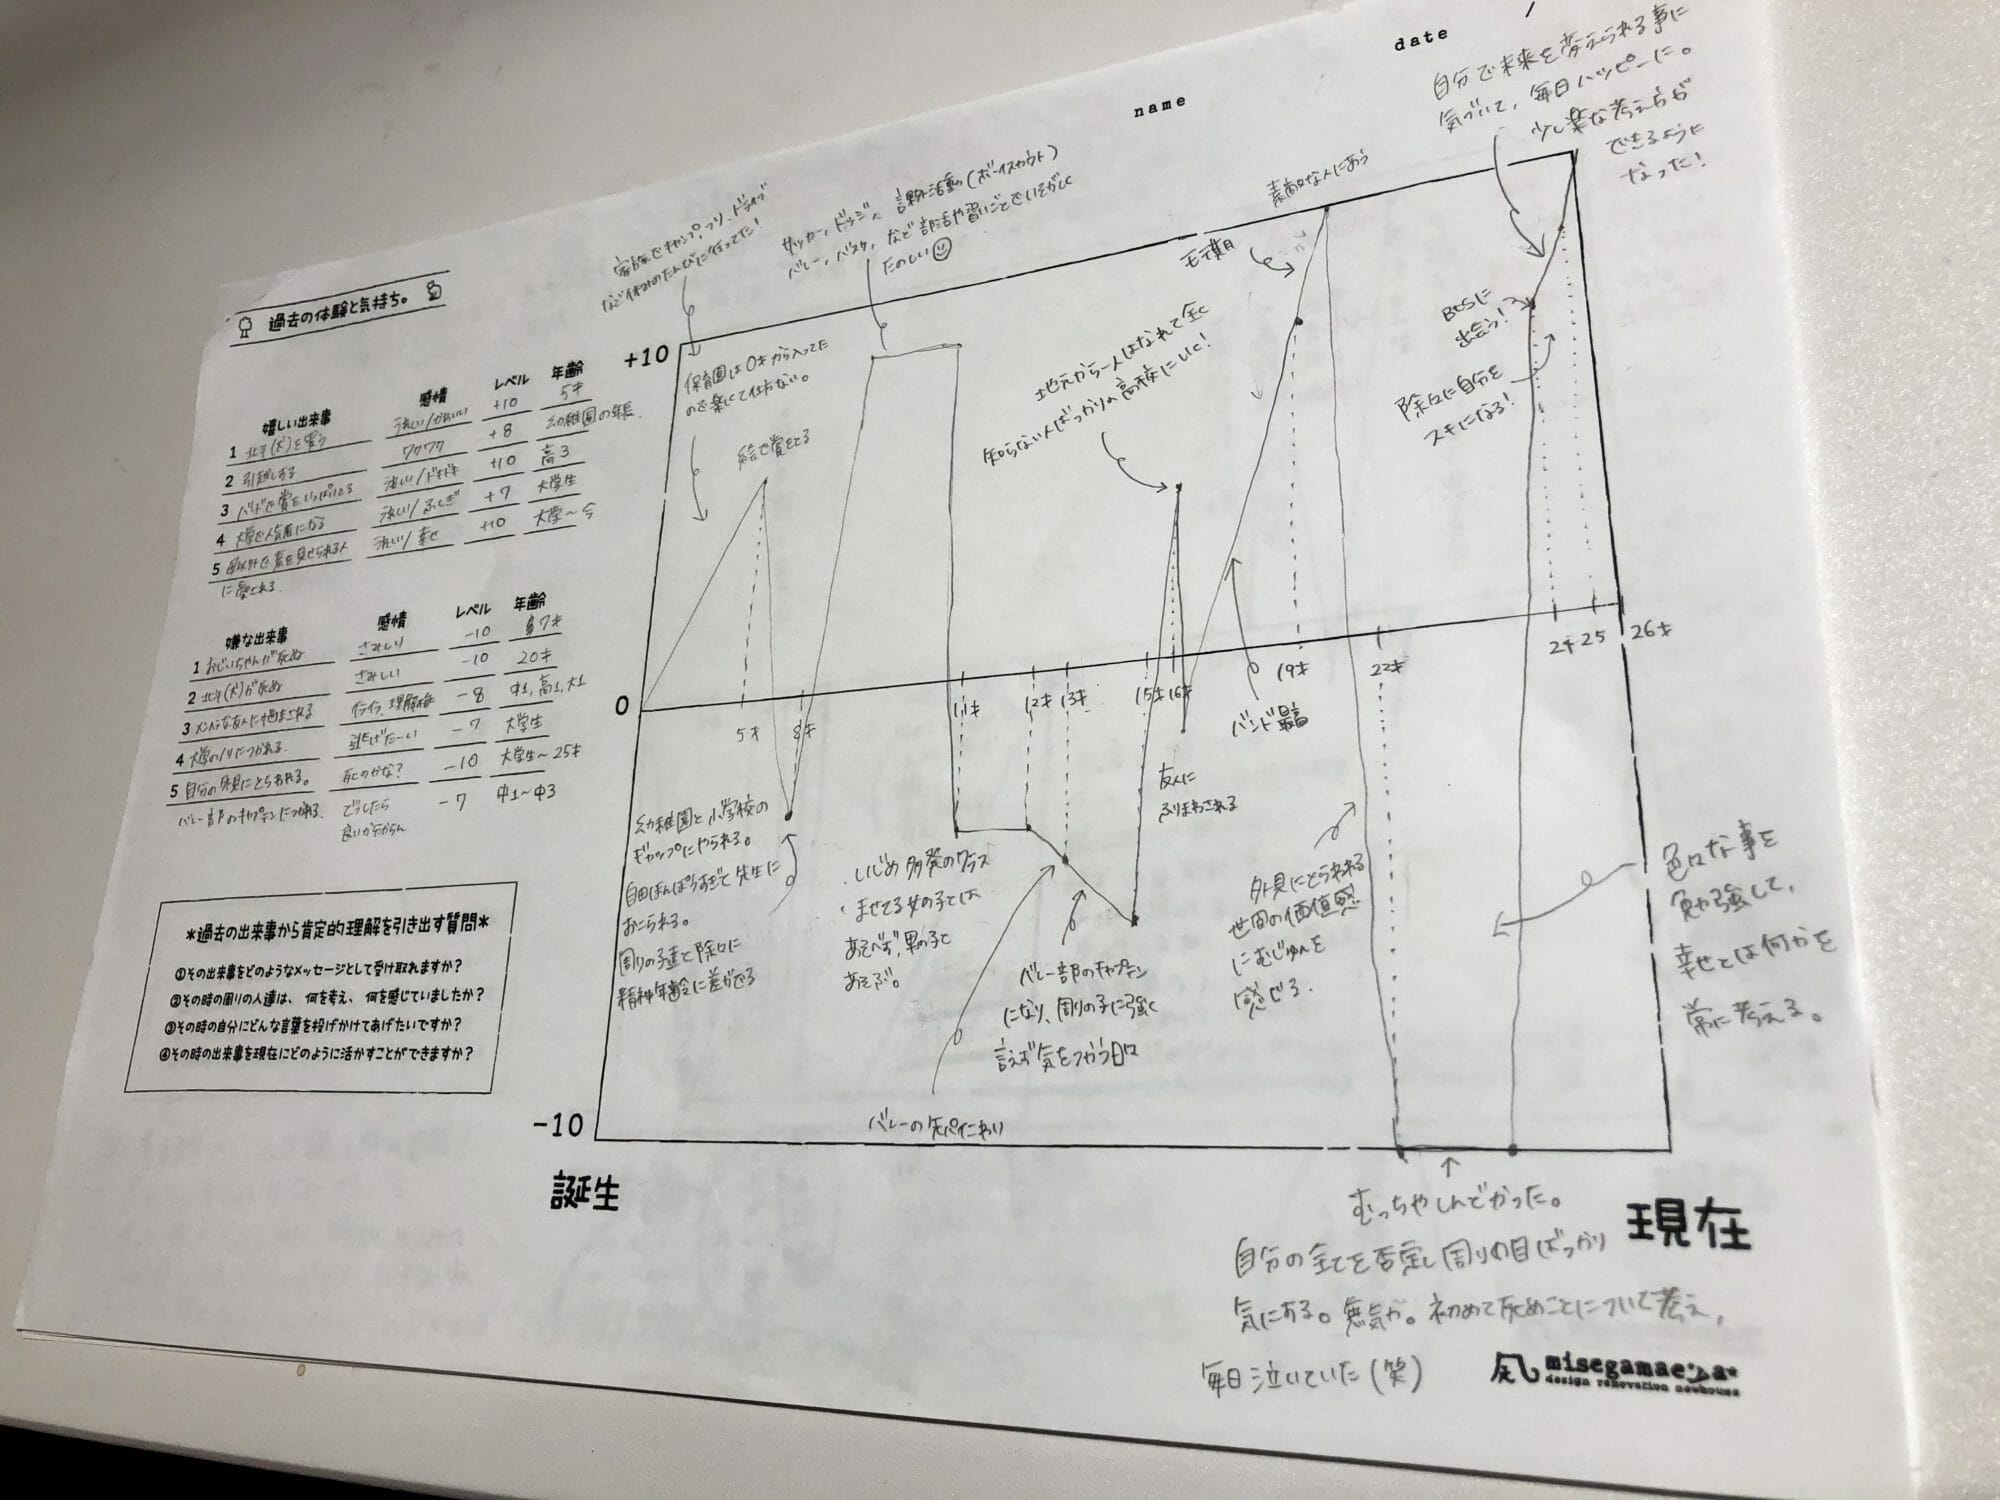 date /
name
自分で未来を変えられる事に
気づいて、毎日ハッピーに。
少し楽な考え方が
できるように
なった!
過去の体験と気持ち。
嬉しい出来事 感情 レベル 年齢
1 北斗(犬)を買う うれしい/かわいい +10 5才
2 引越しする ワクワク +8 幼稚園の年長
3 バンドで賞をいっぱいとる うれしい/ドキドキ +10 高3
4 大学で人気者になる うれしい/ふしぎ +7 大学生
5 自分以外で素を見せられる人 うれしい/幸せ +10 大学〜今
に愛される.
嫌な出来事 感情 レベル 年齢
1 おじいちゃんが死ぬ さみしい -10 7才
2 北斗(犬)が死ぬ さみしい -10 20才
3 メンヘラな友人に悩まされる イライラ、理解 -8 中1,高1,大1
4 大学のノリにつかれる. 逃げたーい -7 大学生
5 自分の外見にとらわれる。 死のかな? -10 大学生〜25才
バレー部のキャプテンにつかれる. どうしたら -7 中1〜中3
良いか分からん
*過去の出来事から肯定的理解を引き出す質問*
①その出来事をどのようなメッセージとして受け取れますか?
②その時の周りの人達は、何を考え、何を感じていましたか?
③その時の自分にどんな言葉を投げかけてあげたいですか?
④その時の出来事を現在にどのように活かすことができますか?
家族でキャンプ、つり、ドライブ
など休みのたんびに行ってた!
サッカー、ドッジ、課外活動(ボーイスカウト)
バレー、バスケ、など部活や習いごとでいそがしく
たのしい
素敵な人にあう
モテ期
+10
保育園は0才から入ってた
ので楽しくて仕方ない。
絵で賞をとる
地元から一人はなれて全く
知らない人ばっかりの高校にいく!
BCSに
出会う!
除々に自分を
スキになる!
0
5才 8才 11才 12才 13才 15才 16才 19才 22才 24 25 26才
バンド最高
友人に
ふりまわされる
幼稚園と小学校の
ギャップにやられる。
自由ほんぽうすぎて先生に
おこられる。
周りの子達と除々に
精神年齢に差がでる
・いじめ多発のクラス
・ませてる女の子とは
あそべず、男の子と
あそぶ。
バレー部のキャプテン
になり、周りの子に強く
言えず気をつかう日々
バレーの先パイこわい
外見にとらわれる
世間の価値感
にむじゅんを
感じる.
色々な事を
勉強して、
幸せとは何かを
常に考える。
-10
誕生
現在
むっちゃしんどかった。
自分の全てを否定し周りの目ばっかり
気にする。無気力。初めて死ぬことについて考え、
毎日泣いていた(笑)
misegamae
design renovation newhouse